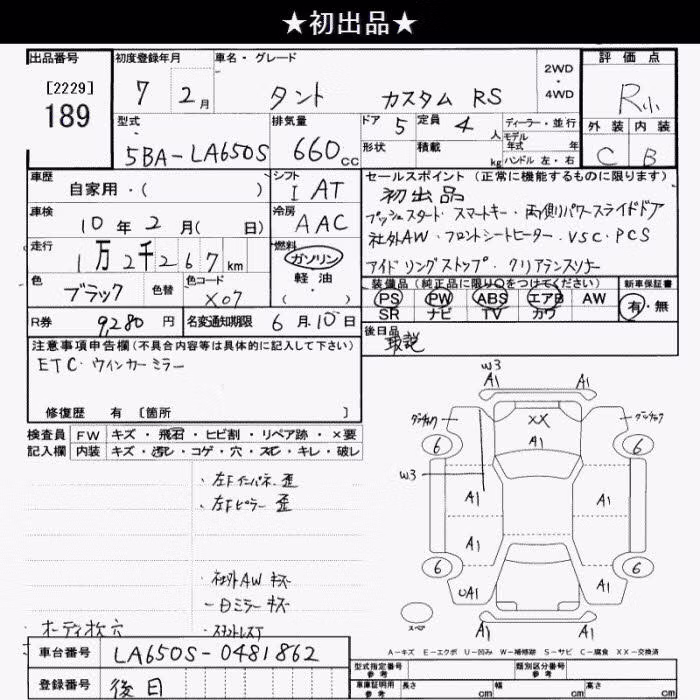 ★初出品★
出品番号
[2229]
189
初度登録年月
7 2月
車名・グレード
タント カスタム RS
2WD
・
4WD
評価点
R小
外装 内装
C B
型式
5BA-LA650S
排気量
660cc
ドア 5 定員 4人
形状 積載 kg
ディーラー・並行
モデル年式 年式
ハンドル 左・右
車歴
自家用・( )
シフト
I AT
車検
10年2月( 日)
冷房
AAC
走行
1万2千267km
燃料
ガソリン
軽油
( )
色
ブラック
色替
色コード
X07
R券 9,280円
名変通知期限 6月10日
セールスポイント(正常に機能するものに限ります)
初出品
プッシュスタート・スマートキー・両側パワースライドドア
社外AW・フロントシートヒーター・VSC・PCS
アイドリングストップ・クリアランスソナー
装備品(純正品に限り○をつけてください)
PS PW ABS エアB AW
SR ナビ TV カワ
新車保証書
有・無
後日品
取説
注意事項申告欄(不具合内容等は具体的に記入して下さい)
ETC・ウインカーミラー
修復歴 有 〔箇所 〕
検査員 FW キズ・飛石・ヒビ割・リペア跡・×要
記入欄 内装 キズ・汚レ・コゲ・穴・スレ・キレ・破レ
・左Fインパネ 歪
・左Fピラー 歪
・社外AW キズ
・白ミラー キズ
オーディオ枕穴
車台番号 LA650S-0481862
登録番号 後日
W3
A1 A1
XX
A1
6 6
W3
A1 A1
A1
6 6
UA1 A1
スペア
A1 A1
A-キズ E-エクボ U-凹み W-補修跡 S-サビ C-腐食 XX-交換済
型式指定番号 参考 類別区分番号 参考
車庫証明用 参考 長さ cm 幅 cm 高さ cm